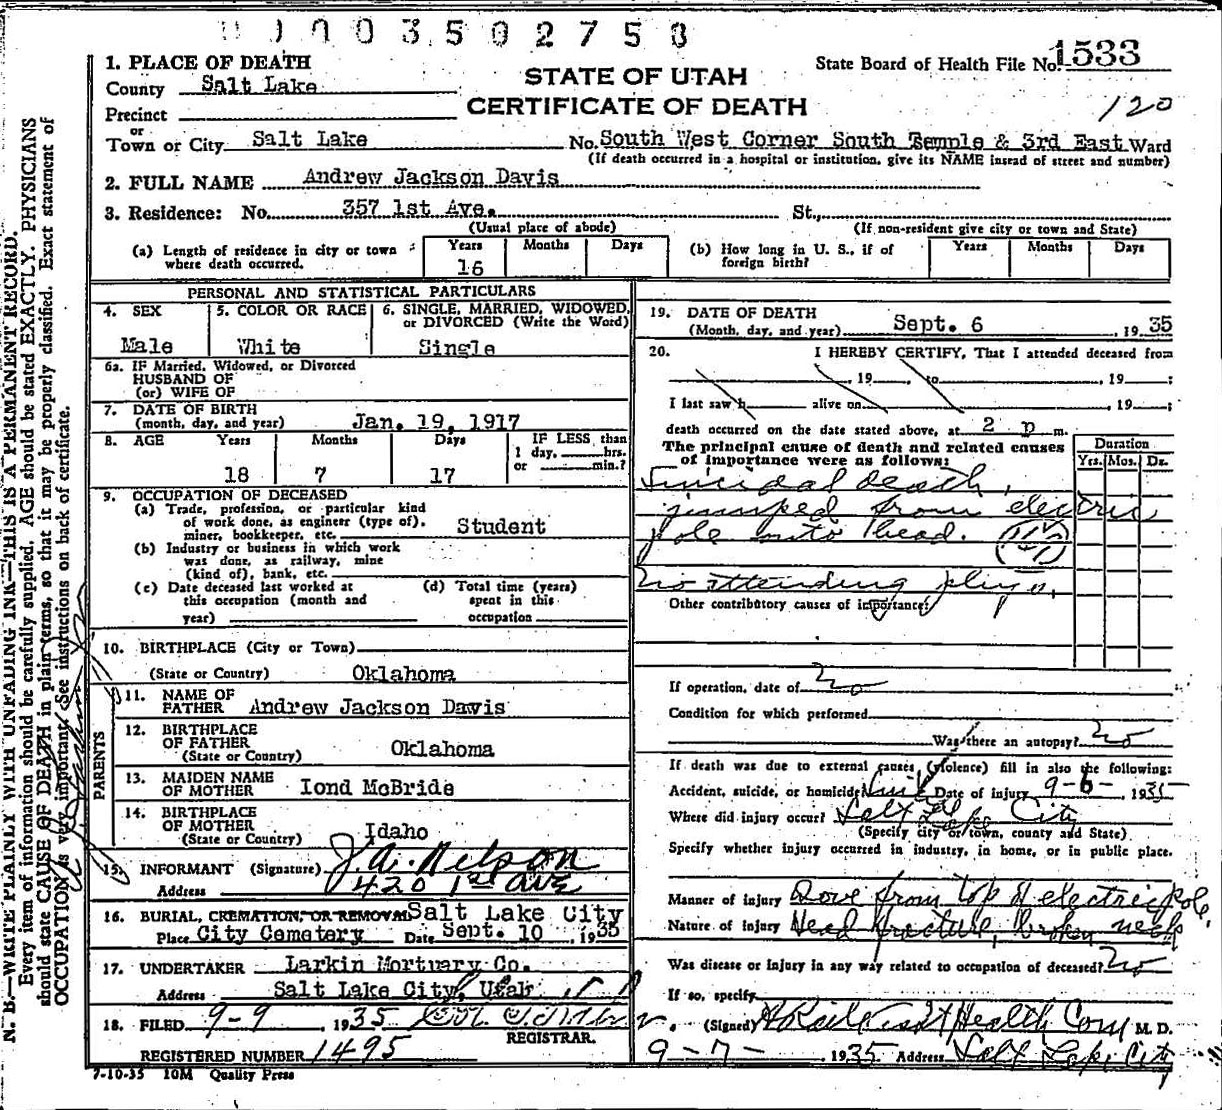 0003502758
1. PLACE OF DEATH
County Salt Lake
Precinct
or
Town or City Salt Lake
STATE OF UTAH
CERTIFICATE OF DEATH
State Board of Health File No. 1533
120
No. South West Corner South Temple & 3rd East Ward
(If death occurred in a hospital or institution, give its NAME insead of street and number)
2. FULL NAME Andrew Jackson Davis
3. Residence: No. 357 1st Ave. St.,
(Usual place of abode) (If non-resident give city or town and State)
(a) Length of residence in city or town where death occurred. Years 16 Months Days
(b) How long in U. S., if of foreign birth? Years Months Days
PERSONAL AND STATISTICAL PARTICULARS
4. SEX Male
5. COLOR OR RACE White
6. SINGLE, MARRIED, WIDOWED, or DIVORCED (Write the Word) Single
6a. IF Married, Widowed, or Divorced
HUSBAND OF
(or) WIFE OF
7. DATE OF BIRTH
(month, day, and year) Jan. 19, 1917
8. AGE Years 18 Months 7 Days 17
IF LESS than
1 day, hrs.
or min.?
9. OCCUPATION OF DECEASED
(a) Trade, profession, or particular kind
of work done, as engineer (type of),
miner, bookkeeper, etc. Student
(b) Industry or business in which work
was done, as railway, mine
(kind of), bank, etc.
(c) Date deceased last worked at
this occupation (month and
year)
(d) Total time (years)
spent in this
occupation
10. BIRTHPLACE (City or Town)
(State or Country) Oklahoma
PARENTS
11. NAME OF
FATHER Andrew Jackson Davis
12. BIRTHPLACE
OF FATHER
(State or Country) Oklahoma
13. MAIDEN NAME
OF MOTHER Iond McBride
14. BIRTHPLACE
OF MOTHER
(State or Country) Idaho
15. INFORMANT (Signature) J. A. Nelson
Address 420 1st Ave
16. BURIAL, CREMATION, OR REMOVAL Salt Lake City
Place City Cemetary Date Sept. 10, 1935
17. UNDERTAKER Larkin Mortuary Co.
Address Salt Lake City, Utah
18. FILED 9-9, 1935
REGISTRAR.
REGISTERED NUMBER 1495
7-10-35 10M Quality Press
19. DATE OF DEATH
(Month, day, and year) Sept. 6, 1935
20. I HEREBY CERTIFY, That I attended deceased from
, 19 , to , 19 ;
I last saw h alive on , 19 ;
death occurred on the date stated above, at 2 p m.
The principal cause of death and related causes
of importance were as follows:
Duration
Yrs. Mos. Ds.
Suicidal death,
jumped from electric
pole onto head.
No attending phys.
Other contributory causes of importance:
If operation, date of No
Condition for which performed
Was there an autopsy? No
If death was due to external causes (violence) fill in also the following:
Accident, suicide, or homicide? Suic Date of injury 9-6-1935
Where did injury occur? Salt Lake City
(Specify city or town, county and State)
Specify whether injury occurred in industry, in home, or in public place.
Manner of injury Dove from top of electric pole,
Nature of injury Head fracture, broken neck
Was disease or injury in any way related to occupation of deceased? No
If so, specify
(Signed) Health Com M. D.
9-7-, 1935 Address Salt Lake City
N. B.—WRITE PLAINLY WITH UNFADING INK—THIS IS A PERMANENT RECORD.
Every item of information should be carefully supplied. AGE should be stated EXACTLY. PHYSICIANS
should state CAUSE OF DEATH in plain terms, so that it may be properly classified. Exact statement of
OCCUPATION is very important. See instructions on back of certificate.